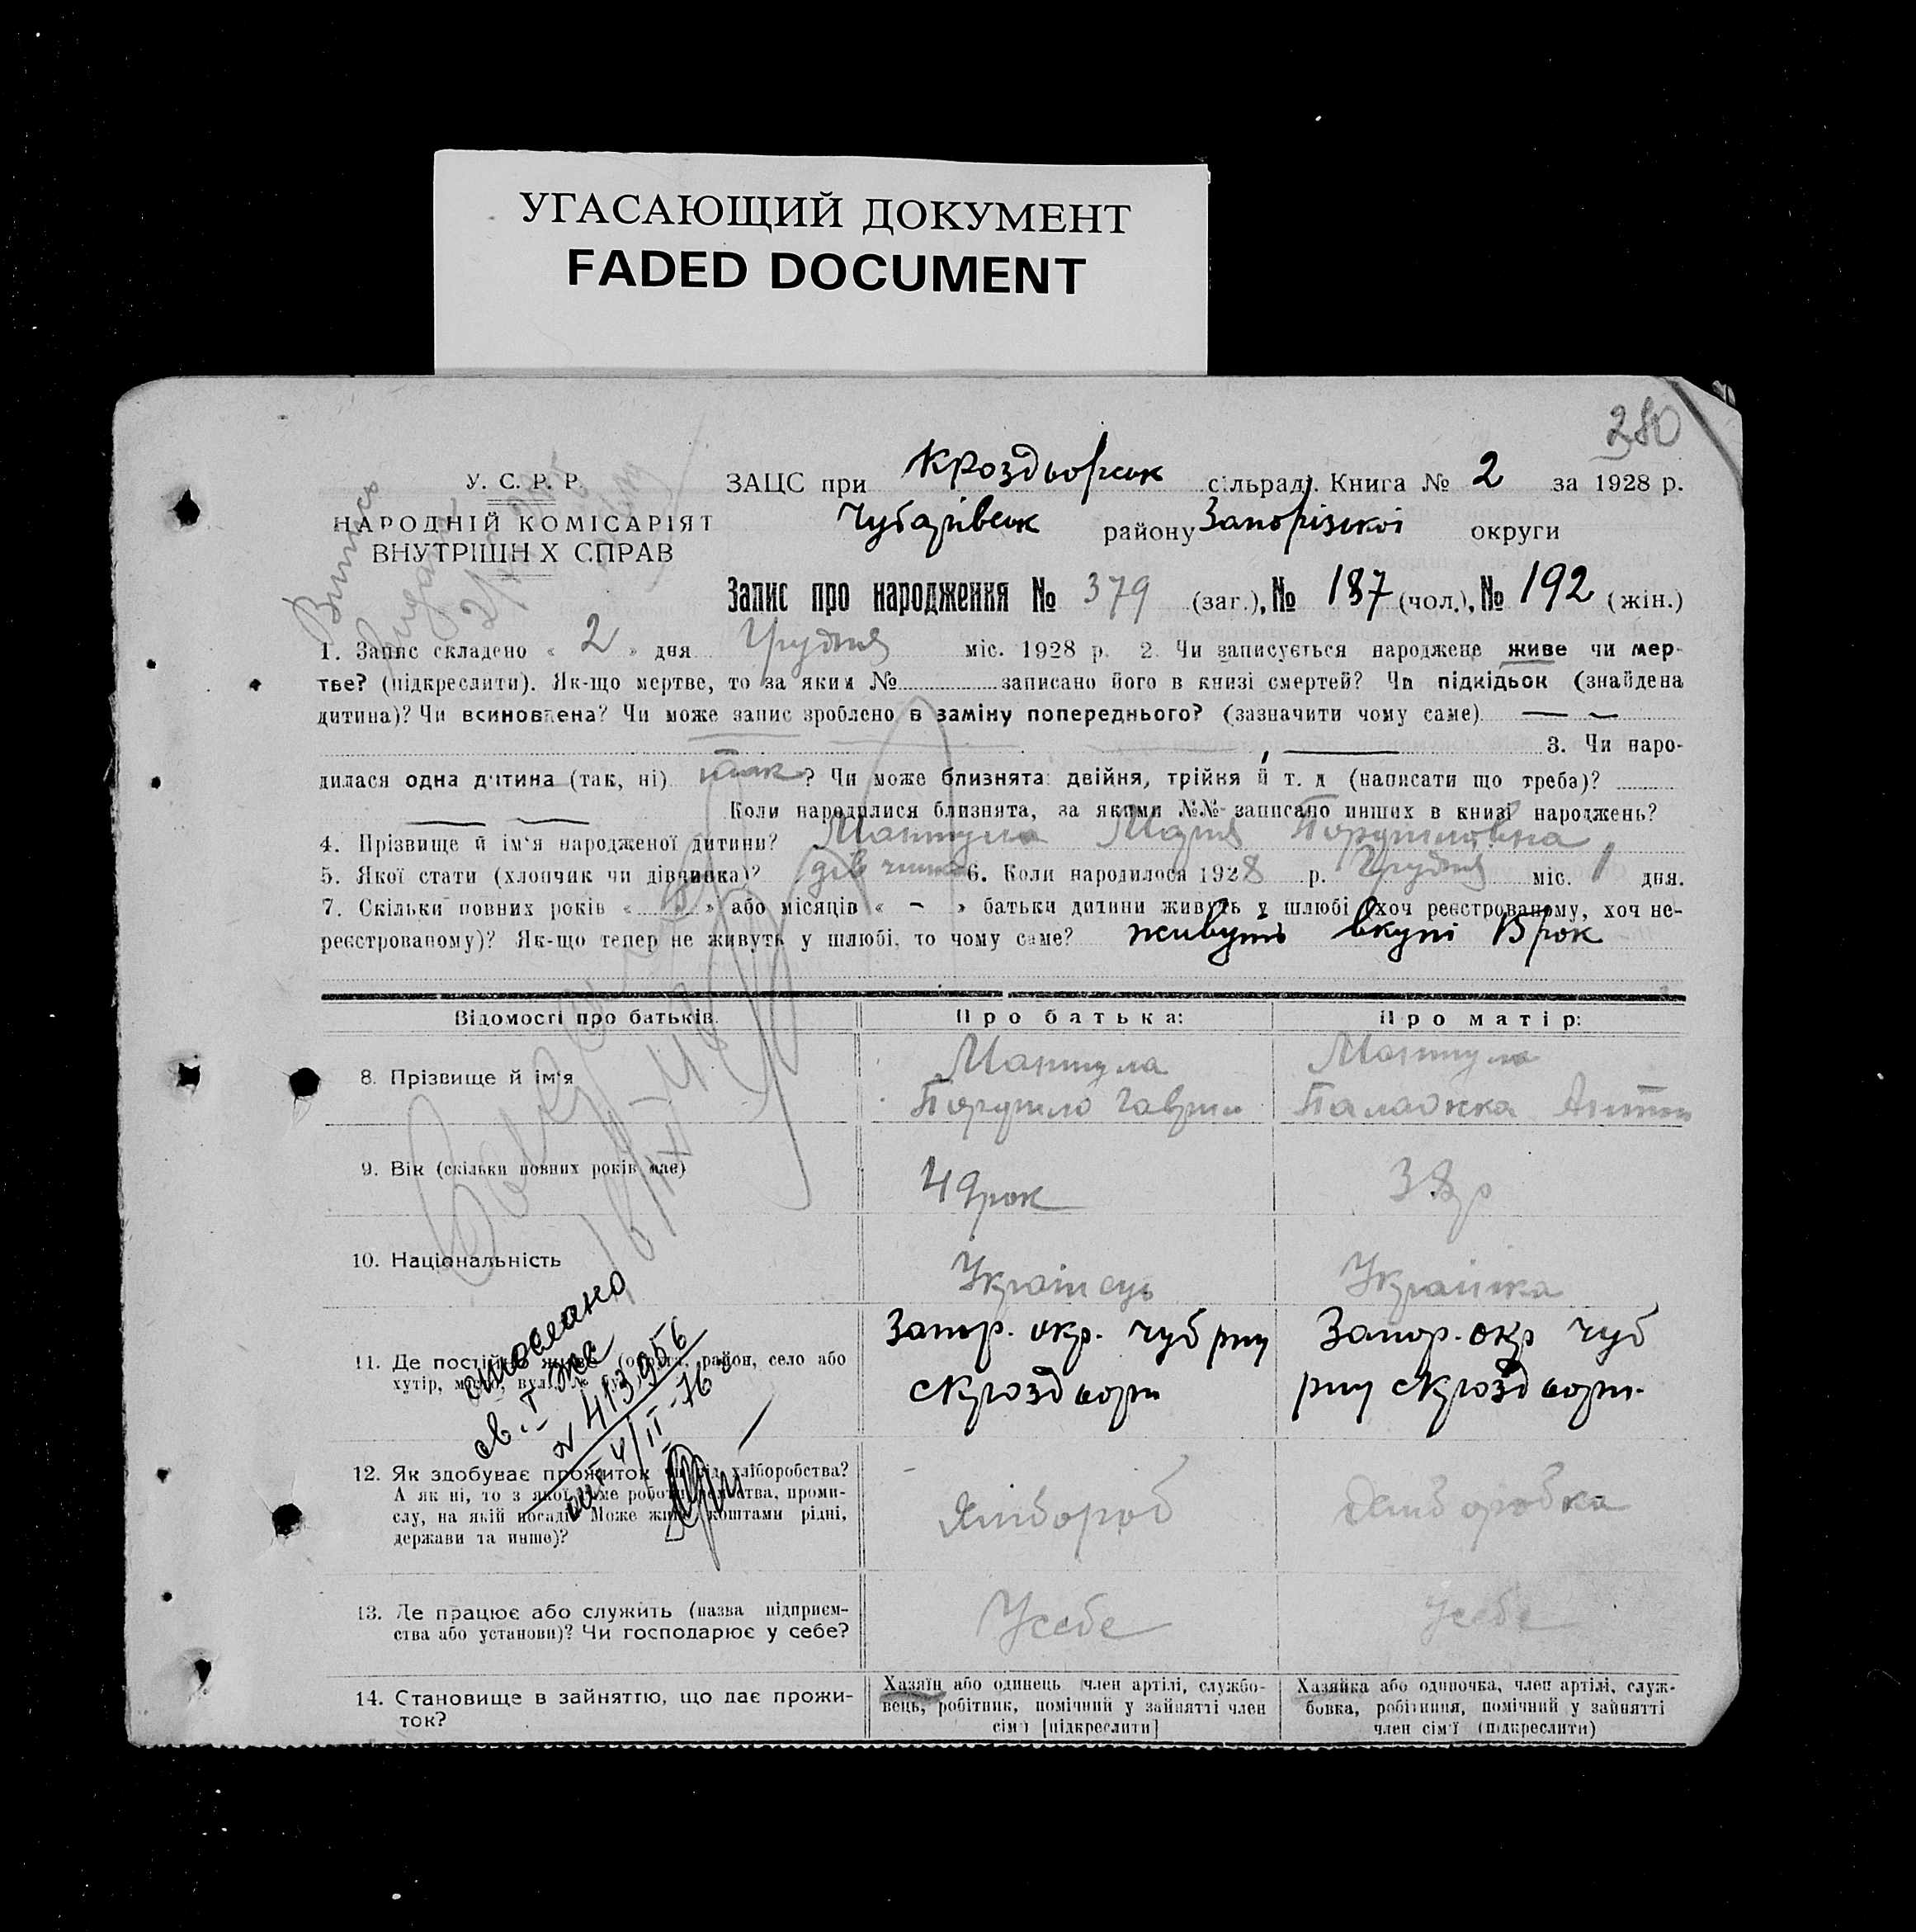 УГАСАЮЩИЙ ДОКУМЕНТ
FADED DOCUMENT
280
У. С. Р. Р.
НАРОДНІЙ КОМІСАРІЯТ
ВНУТРІШН Х СПРАВ
ЗАЦС при сільраді. Книга № 2 за 1928 р.
району Запорізкої округи
Запис про народження № 379 (заг.), № 187 (чол.), № 192 (жін.)
1. Запис складено « 2 » дня Грудня міс. 1928 р. 2. Чи записується народжене живе чи мер-
тве? (підкреслити). Як-що мертве, то за яким № записано його в книзі смертей? Чи підкідьок (знайдена
дитина)? Чи всиновлена? Чи може запис зроблено в заміну попереднього? (зазначити чому саме)
3. Чи наро-
дилася одна дитина (так, ні) так? Чи може близнята: двійня, трійня й т. д (написати що треба)?
Коли народилися близнята, за якими №№ записано инших в книзі народжень?
4. Прізвище й ім'я народженої дитини? Мантула Марія
5. Якої стати (хлопчик чи дівчинка)? дівчинка 6. Коли народилося 1928 р. Грудня міс. 1 дня.
7. Скільки повних років « » або місяців « – » батьки дитини живуть у шлюбі (хоч реєстрованому, хоч не-
реєстрованому)? Як-що тепер не живуть у шлюбі, то чому саме? живуть вкупі рок
Відомості про батьків.
Про батька:
Про матір:
8. Прізвище й ім'я
Мантула
Гаврил
Мантула
9. Вік (скільки повних років має)
49 рок
38 р
10. Національність
Українець
Українка
11. Де постійно живе (округа, район, село або
хутір, місто, вул. №
Запор. окр. чуб рну
Запор. окр чуб
рну
№ 413956
4/II-76
12. Як здобуває прожиток хліборобства?
А як ні, то з якої саме роботи проми-
слу, на якій посаді? Може живе коштами рідні,
держави та инше)?
Хлібороб
Хліборобка
13. Де працює або служить (назва підприєм-
ства або установи)? Чи господарює у себе?
Усебе
Усебе
14. Становище в зайняттю, що дає прожи-
ток?
Хазяїн або одинець член артілі, службо-
вець, робітник, помічний у зайнятті член
сім'ї [підкреслити]
Хазяйка або одиночка, член артілі, служ-
бовка, робітниця, помічний у зайнятті
член сім'ї (підкреслити)